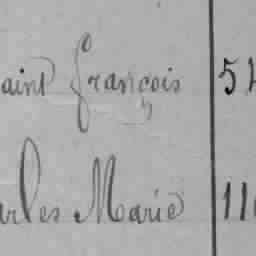 aint françois 54
arles Marie 110